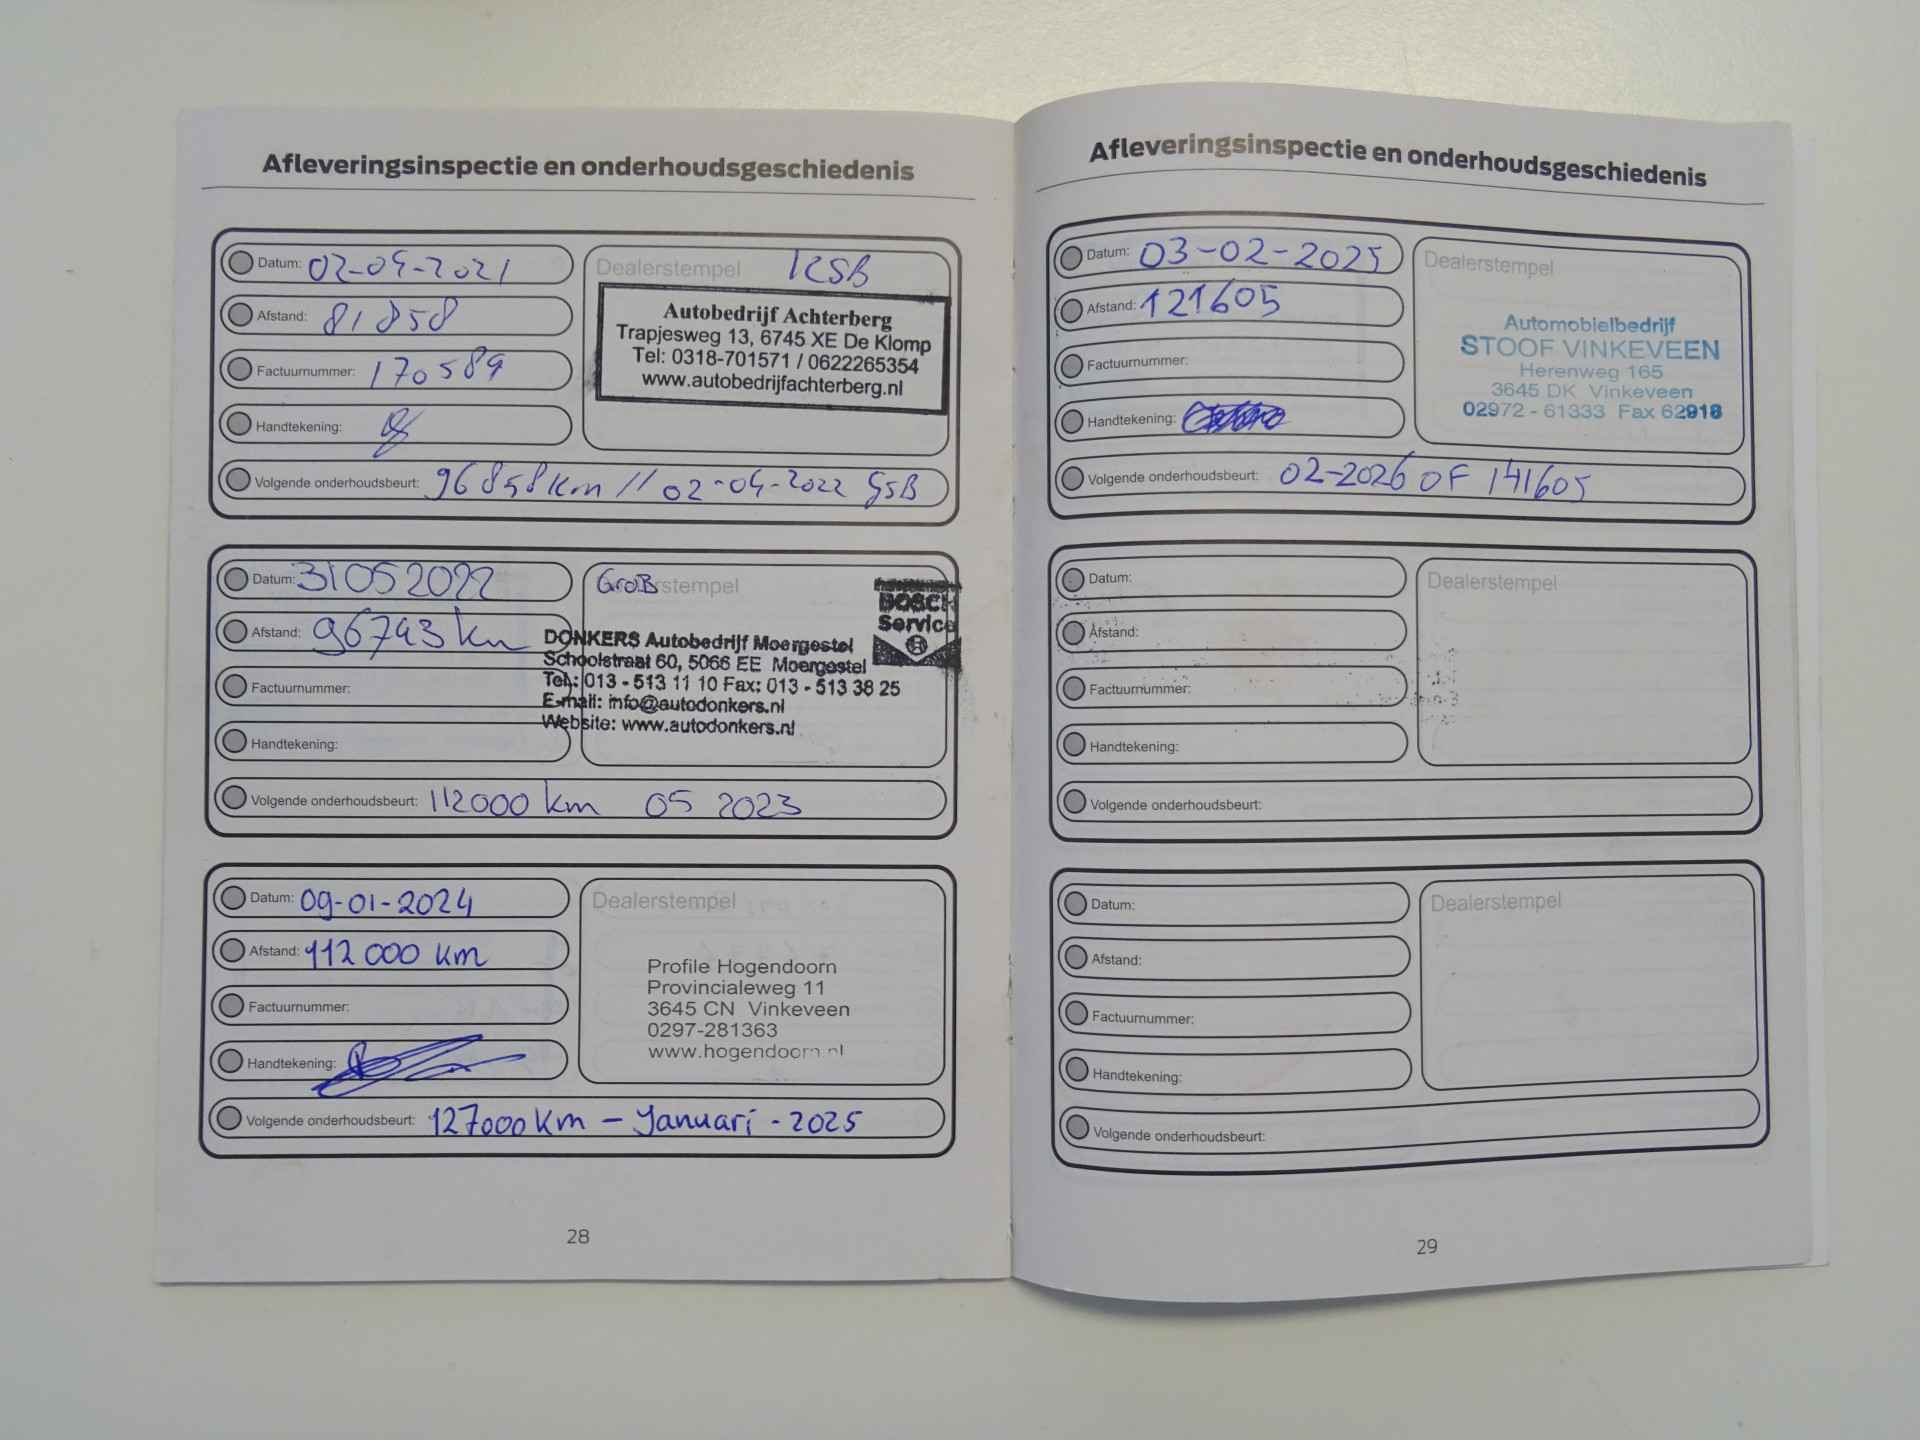 Afleveringsinspectie en onderhoudsgeschiedenis
Datum: 02-04-2021
Afstand: 81858
Factuurnummer: 170589
Handtekening:
Dealerstempel KSB
Autobedrijf Achterberg
Trapjesweg 13, 6745 XE De Klomp
Tel: 0318-701571 / 0622265354
www.autobedrijfachterberg.nl
Volgende onderhoudsbeurt: 96858km // 02-04-2022 GSB
Datum: 31052022
Afstand: 96743 km
Factuurnummer:
Handtekening:
GroB
BOSCH
Service
DONKERS Autobedrijf Moergestel
Schoolstraat 60, 5066 EE Moergestel
Tel.: 013 - 513 11 10 Fax: 013 - 513 38 25
E-mail: info@autodonkers.nl
Website: www.autodonkers.nl
Volgende onderhoudsbeurt: 112000 km 05 2023
Datum: 09-01-2024
Afstand: 112 000 km
Factuurnummer:
Handtekening:
Dealerstempel
Profile Hogendoorn
Provincialeweg 11
3645 CN Vinkeveen
0297-281363
www.hogendoorn.nl
Volgende onderhoudsbeurt: 127000 Km - Januari - 2025
28
Afleveringsinspectie en onderhoudsgeschiedenis
Datum: 03-02-2025
Afstand: 121605
Factuurnummer:
Handtekening:
Dealerstempel
Automobielbedrijf
STOOF VINKEVEEN
Herenweg 165
3645 DK Vinkeveen
02972 - 61333 Fax 62918
Volgende onderhoudsbeurt: 02-2026 OF 141605
Datum:
Afstand:
Factuurnummer:
Handtekening:
Dealerstempel
Volgende onderhoudsbeurt:
Datum:
Afstand:
Factuurnummer:
Handtekening:
Dealerstempel
Volgende onderhoudsbeurt:
29